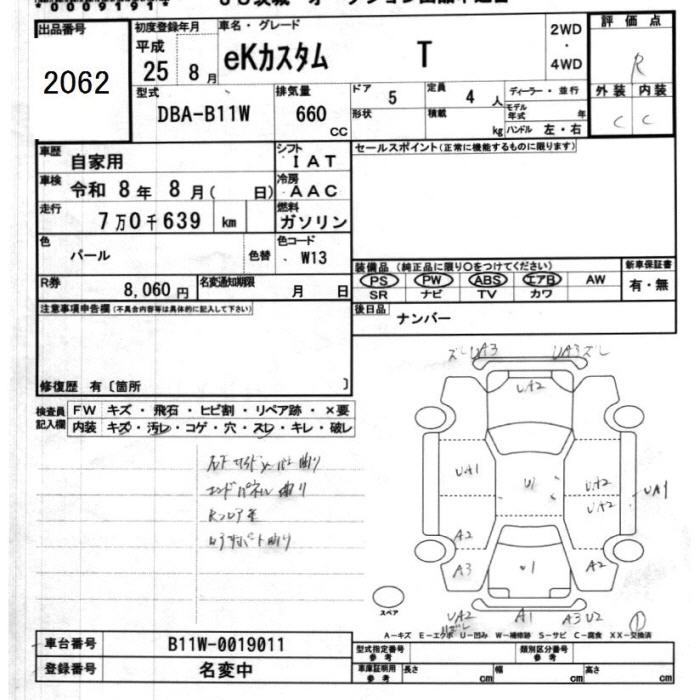 出品番号
2062
初度登録年月
平成
25年 8月
車名・グレード
eKカスタム T
2WD
・
4WD
評価点
R
外装 内装
C C
型式
DBA-B11W
排気量
660
CC
ドア
5
定員
4人
形状
積載
kg
ディーラー・並行
モデル年式 年
ハンドル 左・右
車歴
自家用
シフト
IAT
車検
令和 8年 8月( 日)
冷房
AAC
走行
7万0千639 km
燃料
ガソリン
色
パール
色替
色コード
W13
R券
8,060円
名変通知期限
月 日
セールスポイント(正常に機能するものに限ります)
装備品 (純正品に限り○をつけてください)
PS PW ABS エアB AW
SR ナビ TV カワ
新車保証書
有・無
後日品
ナンバー
注意事項申告欄(不具合内容等は具体的に記入して下さい)
修復歴 有〔箇所 〕
検査員記入欄
FW キズ・飛石・ヒビ割・リペア跡・×要
内装 キズ・汚レ・コゲ・穴・スレ・キレ・破レ
エンドパネル曲り
ズレ UA3
UA3 ズレ
UA2
UA1
U1
UA2
UA2
UA1
A2
A3
U1
A2
UA2
A1
A3 U2
①
スペア
A-キズ E-エクボ U-凹み W-補修跡 S-サビ C-腐食 XX-交換済
車台番号
B11W-0019011
登録番号
名変中
型式指定番号
参考
類別区分番号
参考
車庫証明用
参考
長さ cm
幅 cm
高さ cm